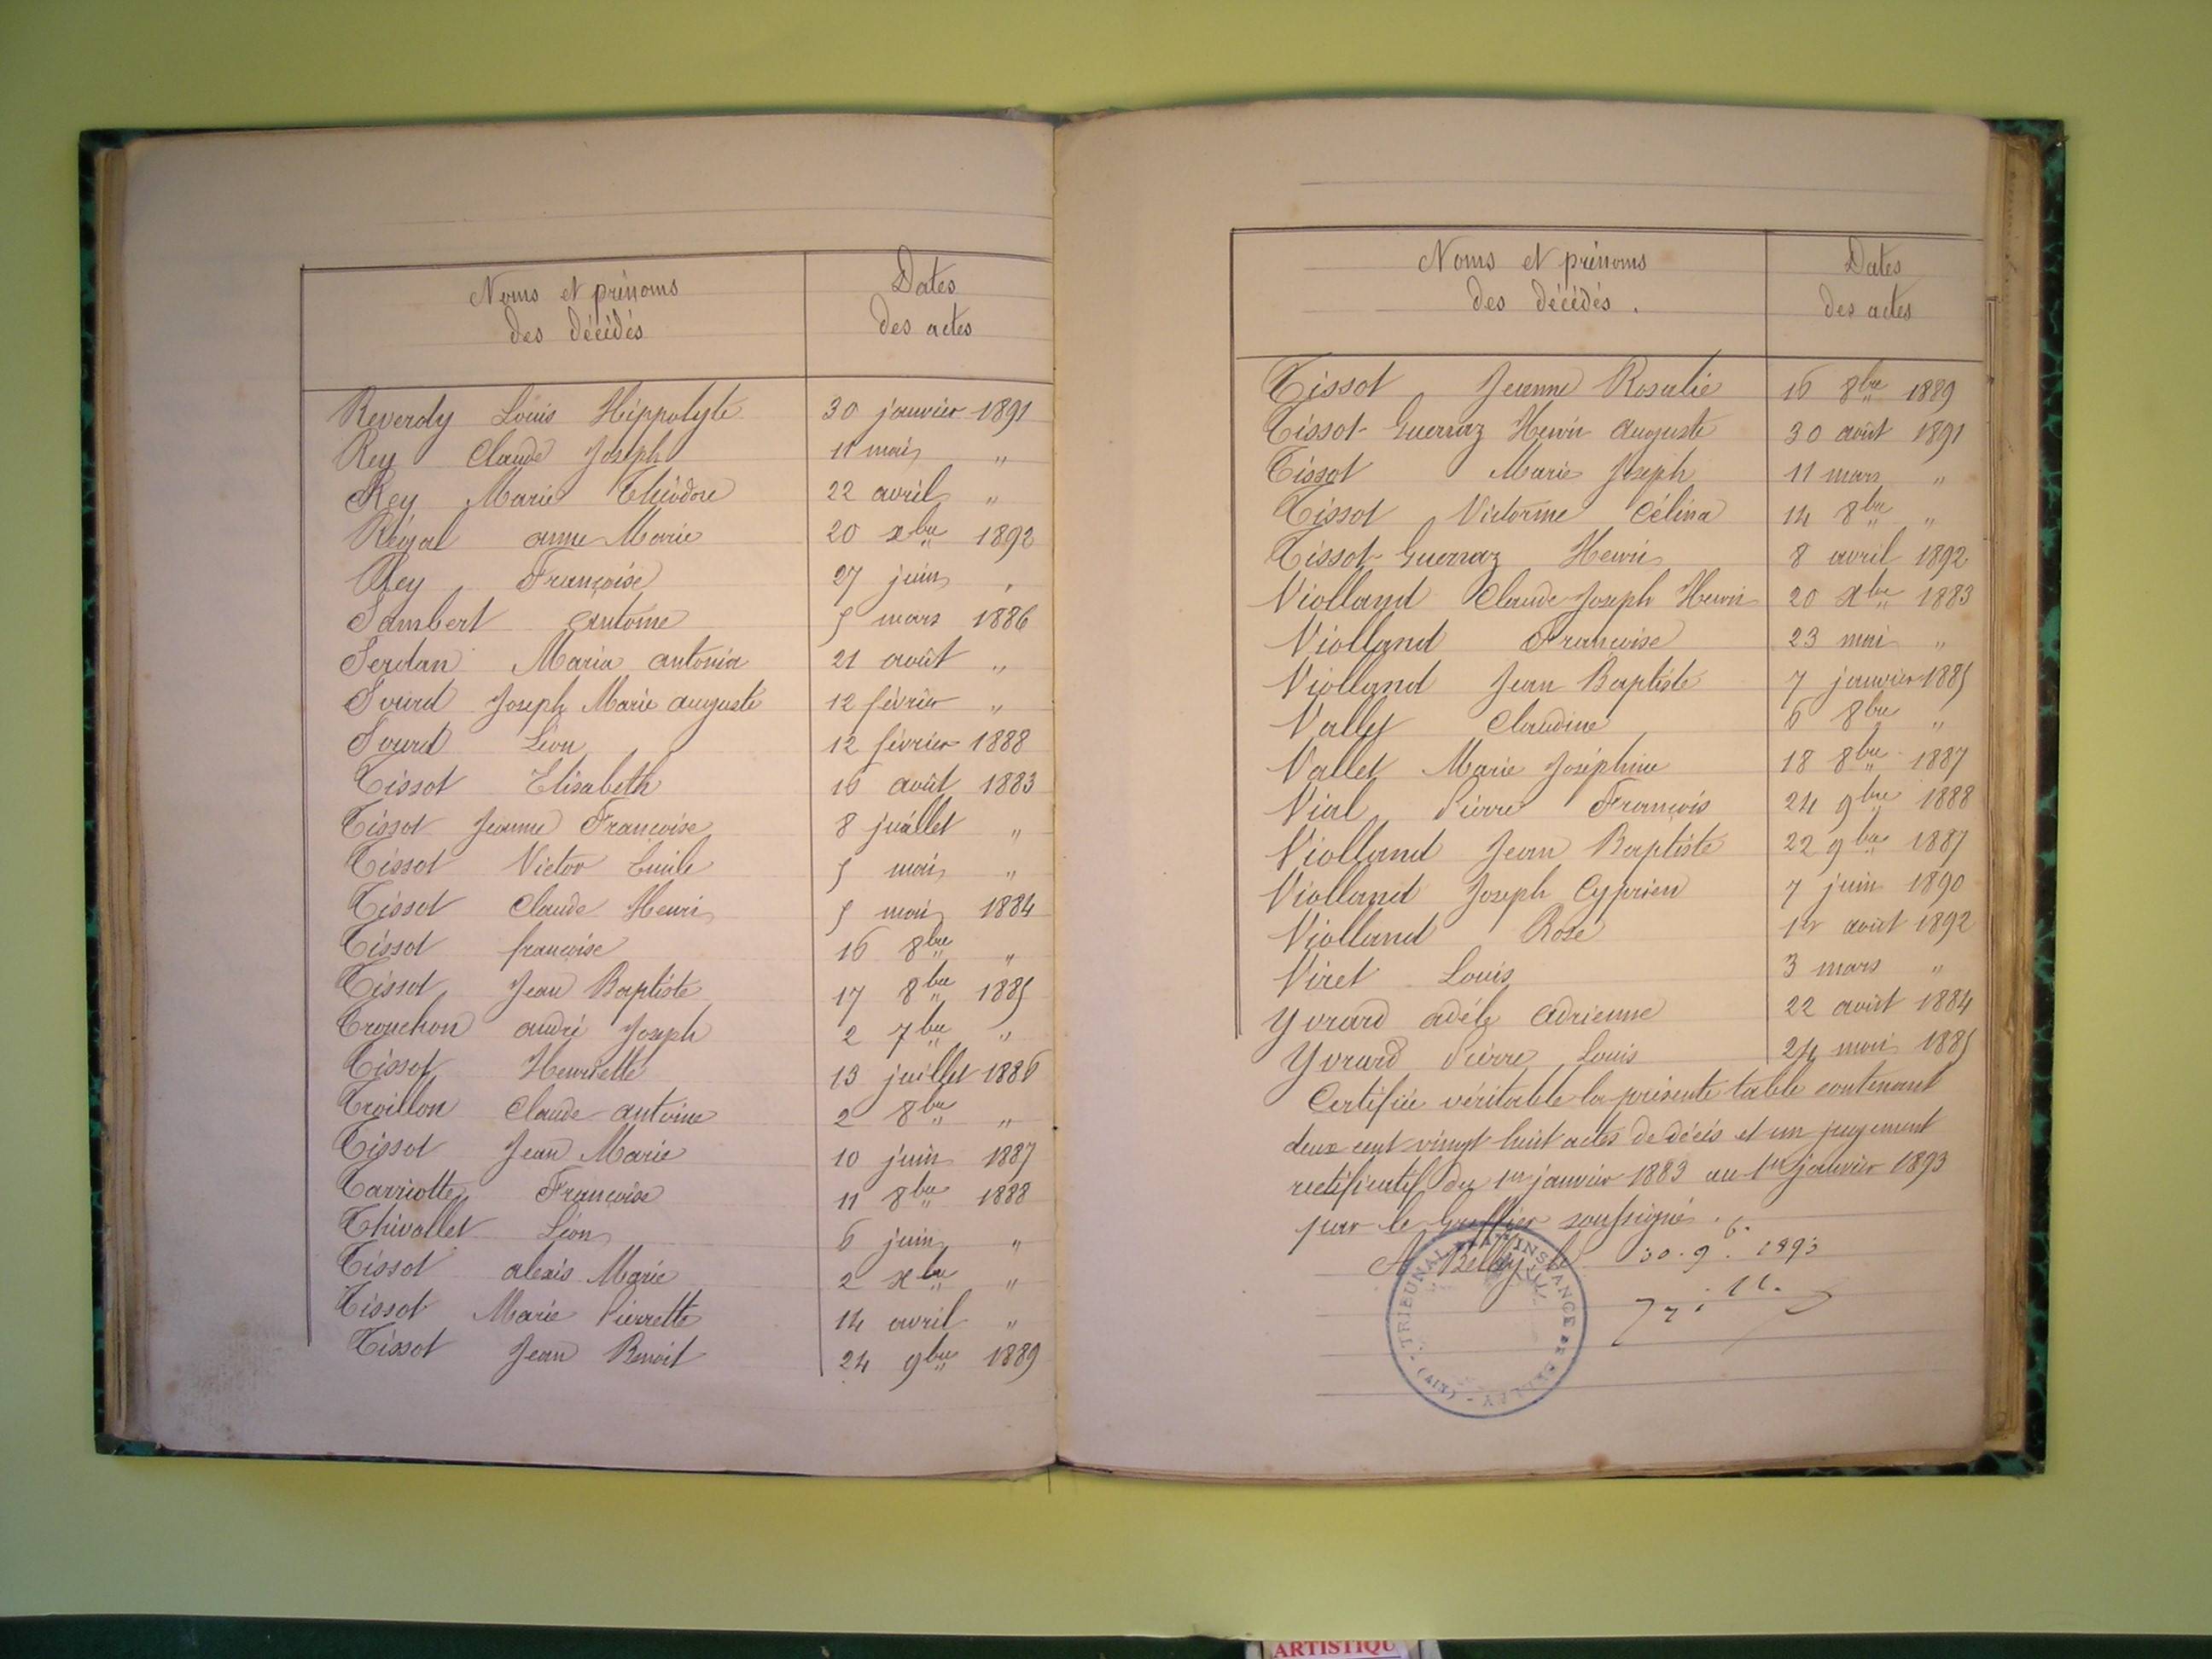 Noms et prénoms
des décédés
Dates
des actes
Reverdy Louis Hippolyte 30 janvier 1891
Rey Claude Joseph 11 mai "
Rey Marie Théodore 22 avril "
Régal anne Marie 20 xbre 1892
Rey Françoise 27 juin "
Sambert antoine 5 mars 1886
Serdan Maria antonia 21 août "
Sourd Joseph Marie auguste 12 février "
Sourd Léon 12 février 1888
Tissot Elisabeth 16 août 1883
Tissot Jeanne Françoise 8 juillet "
Tissot Victor Emile 5 mai "
Tissot Claude Henri 5 mai 1884
Tissot françoise 16 8bre "
Tissot Jean Baptiste 17 8bre 1885
Trouchon andré Joseph 2 7bre "
Tissot Henriette 13 juillet 1886
Troillon Claude-antoine 2 8bre "
Tissot Jean Marie 10 juin 1887
Tarriotte Françoise 11 8bre 1888
Thivollet Léon 6 juin "
Tissot alexis Marie 2 xbre "
Tissot Marie Pierrette 14 avril "
Tissot Jean Benoit 24 9bre 1889
Noms et prénoms
des décédés.
Dates
des actes
Tissot Jeanne Rosalie 16 8bre 1889
Tissot-Guerraz Henri auguste 30 août 1891
Tissot Marie Joseph 11 mars "
Tissot Victorine Célina 14 8bre "
Tissot-Guerraz Henri 8 avril 1892
Violland Claude-Joseph Henri 20 xbre 1883
Violland Françoise 23 mai "
Violland Jean Baptiste 7 janvier 1885
Vallet Claudine 6 8bre "
Vallet Marie Joséphine 18 8bre 1887
Vial Pierre François 24 9bre 1888
Violland Jean Baptiste 22 9bre 1887
Violland Joseph Cyprien 7 juin 1890
Violland Rose 1er août 1892
Viret Louis 3 mars "
Yvrard adèle adrienne 22 août 1884
Yvrard Pierre Louis 24 mai 1885
Certifiée véritable la présente table contenant
deux cent vingt huit actes de décès et un jugement
rectificatif du 1er janvier 1883 au 1er janvier 1893
par le Greffier soussigné.
A Belley le 30. 9. 1893
TRIBUNAL INSTANCE DE BELLEY (AIN)
ARTISTIQU